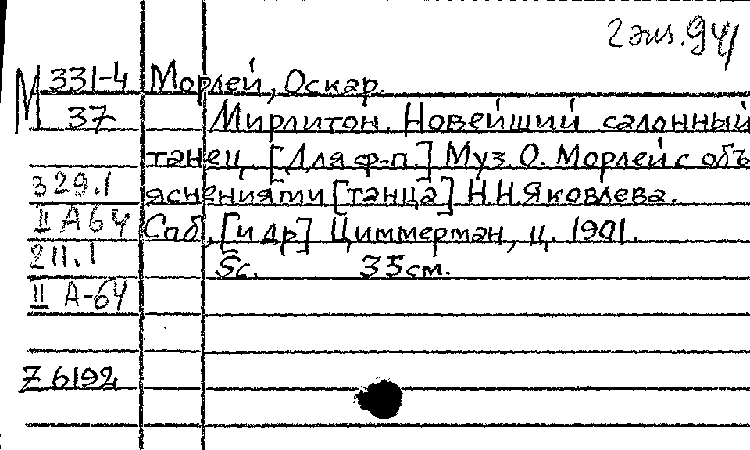 2 экз.
М 331-4 Морлей, Оскар.
37 Мирлитон. Новейший салонный
танец. [Для ф-п.] Муз. О. Морлей с объ
329.1 яснениями [танца] Н.Н.Яковлева.
II А64 Спб, [и др] Циммерман, ц. 1901.
211.1 5с. 35см.
II А-64
Z 6192